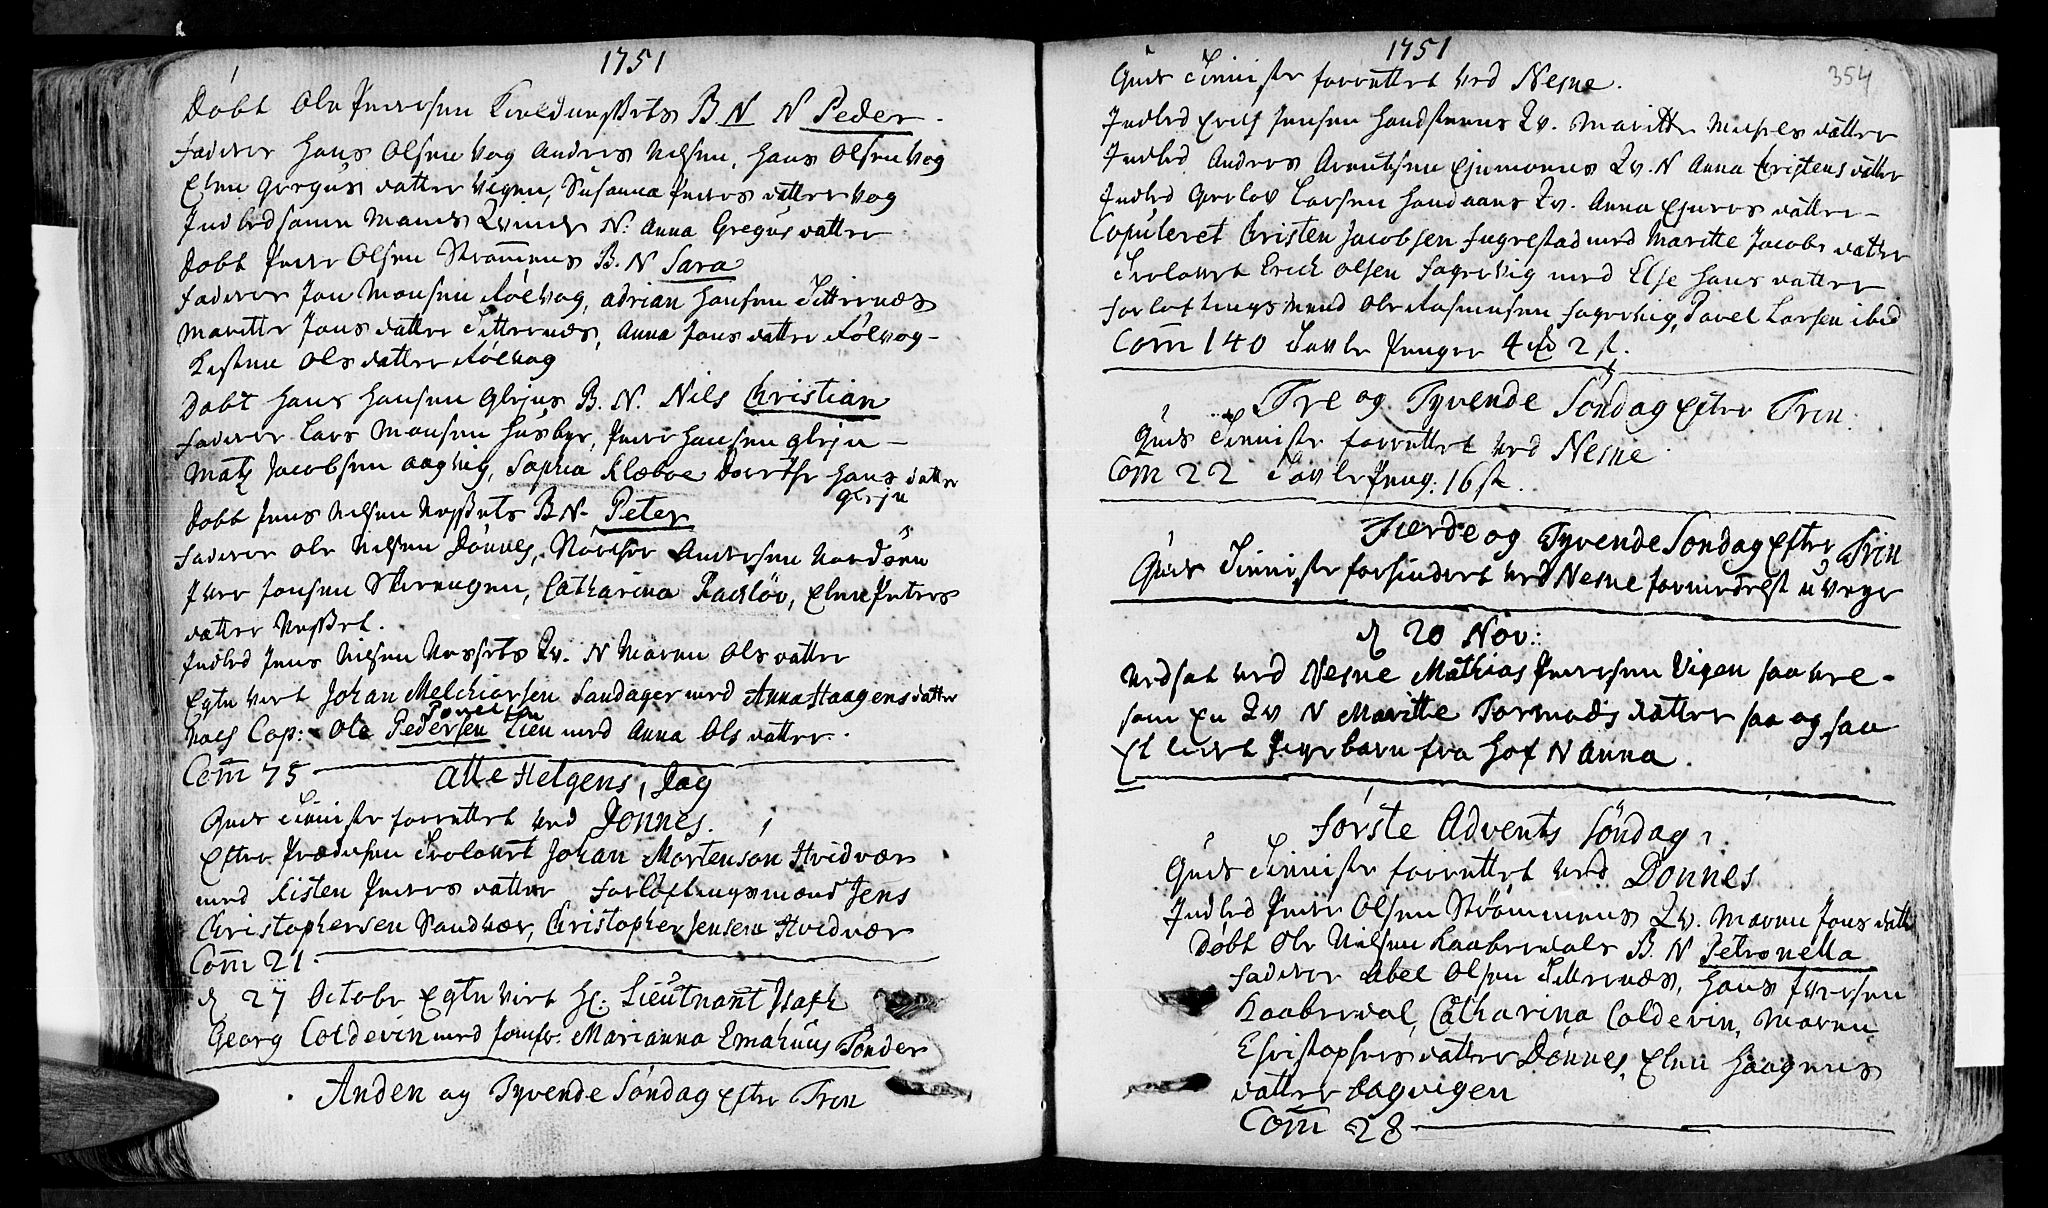 1751
Døbt Ole Pedersen B N N Peder
Faddere Hans Olsen Vog Anders Nilsen, Hans Olsen Vog
Elen Gregus datter Vigen, Susanna Peders datter Vog
Indled samme Mands Qvinde N. Anna Gregus datter
Døbt Peder Olsen Strømmens B. N Sara
Faddere Jon Monsen Rølvog, Adrian Hansen Titternæs
Maritte Jons datter Titternæs, Anna Jons datter Rølvog
Kisten Ols datter Rølvog
Døbt Hans Hansen Glejns B. N. Nils Christian
Faddere Lars Monsen Husbye, Peder Hansen Glejn
Matz Jacobsen Aagvig, Sophia Klæboe Dorthe Hans datter
Glejn
Døbt Jens Nilsen Næssets B N. Peter
Faddere Ole Nilsen Dønnes, Andersen Nordøen
Iver Jonsen Skevengen, Catharina Rachløv, Elen Peters
datter Næsset.
Indled Jens Nilsen Næssets Qv. N Maren Ols datter
Egteviet Johan Melchiorsen Sandager med Anna Haagens datter
Cop: Ole Povelsen
Pedersen Lien med Anna Ols datter.
Com 75
Alle Helgens Dag
Guds Tieniste forrettet ved Dønnes.
Efter Prædiken Trolovet Johan Mortenson Hvidvær
med Kisten Peders datter Forløftningsmænd Jens
Christophersen Sandvær, Christopher Jensen Hvidvær
Com 21.
d 27 Octobr Egteviet Hr: Lieutnant
Georg Coldevin med Jomfr: Marianna Emahuus Tønder
Anden og Tyvende Søndag Efter Trin
1751
354
Guds Tieniste forrettet ved Nesne.
Indled Jensen Handstenens Qv. Maritte datter
Indled Anders Arentsen Qv. N Anna Cristens datter
Indled Larsen Handaans Qv. Anna Ejvers datter
Copuleret Cristen Jacobsen med Maritte Jacobs datter
Trolovet Erich Olsen Fagervig med Else Hans datter
Forløftningsmænd Ole Rasmussen Fagervig, Povel Larsen ibid
Com 140 Tavle Penger 4 2 s.
Tre og Tyvende Søndag Efter Trin:
Guds Tieniste forrettet ved Nesne
Com 22 Tavle Peng: 16 s.
Fierde og Tyvende Søndag Efter Trin
Guds Tieniste forhindret ved Nesne formedelst u Veyr
d 20 Nov:
ved Nesne Mathias Pedersen Vigen saa vel
som En Qv N Maritte Tormods datter saa og saa
Et lidet Pigebarn fra Hof N Anna.
Første Advents Søndag
Guds Tieniste forrettet ved Dønnes
Indled Peder Olsen Strømmens Qv. Maren Jons datt
Døbt Ole Nielsen Kaaberdals B. N Petronella
Faddere Abel Olsen Titternæs, Hans Iversen
Kaaberdal, Catharina Coldevin, Maren
Christophers datter Dønnes, Elen Haagens
datter Aagvigen
Com 28